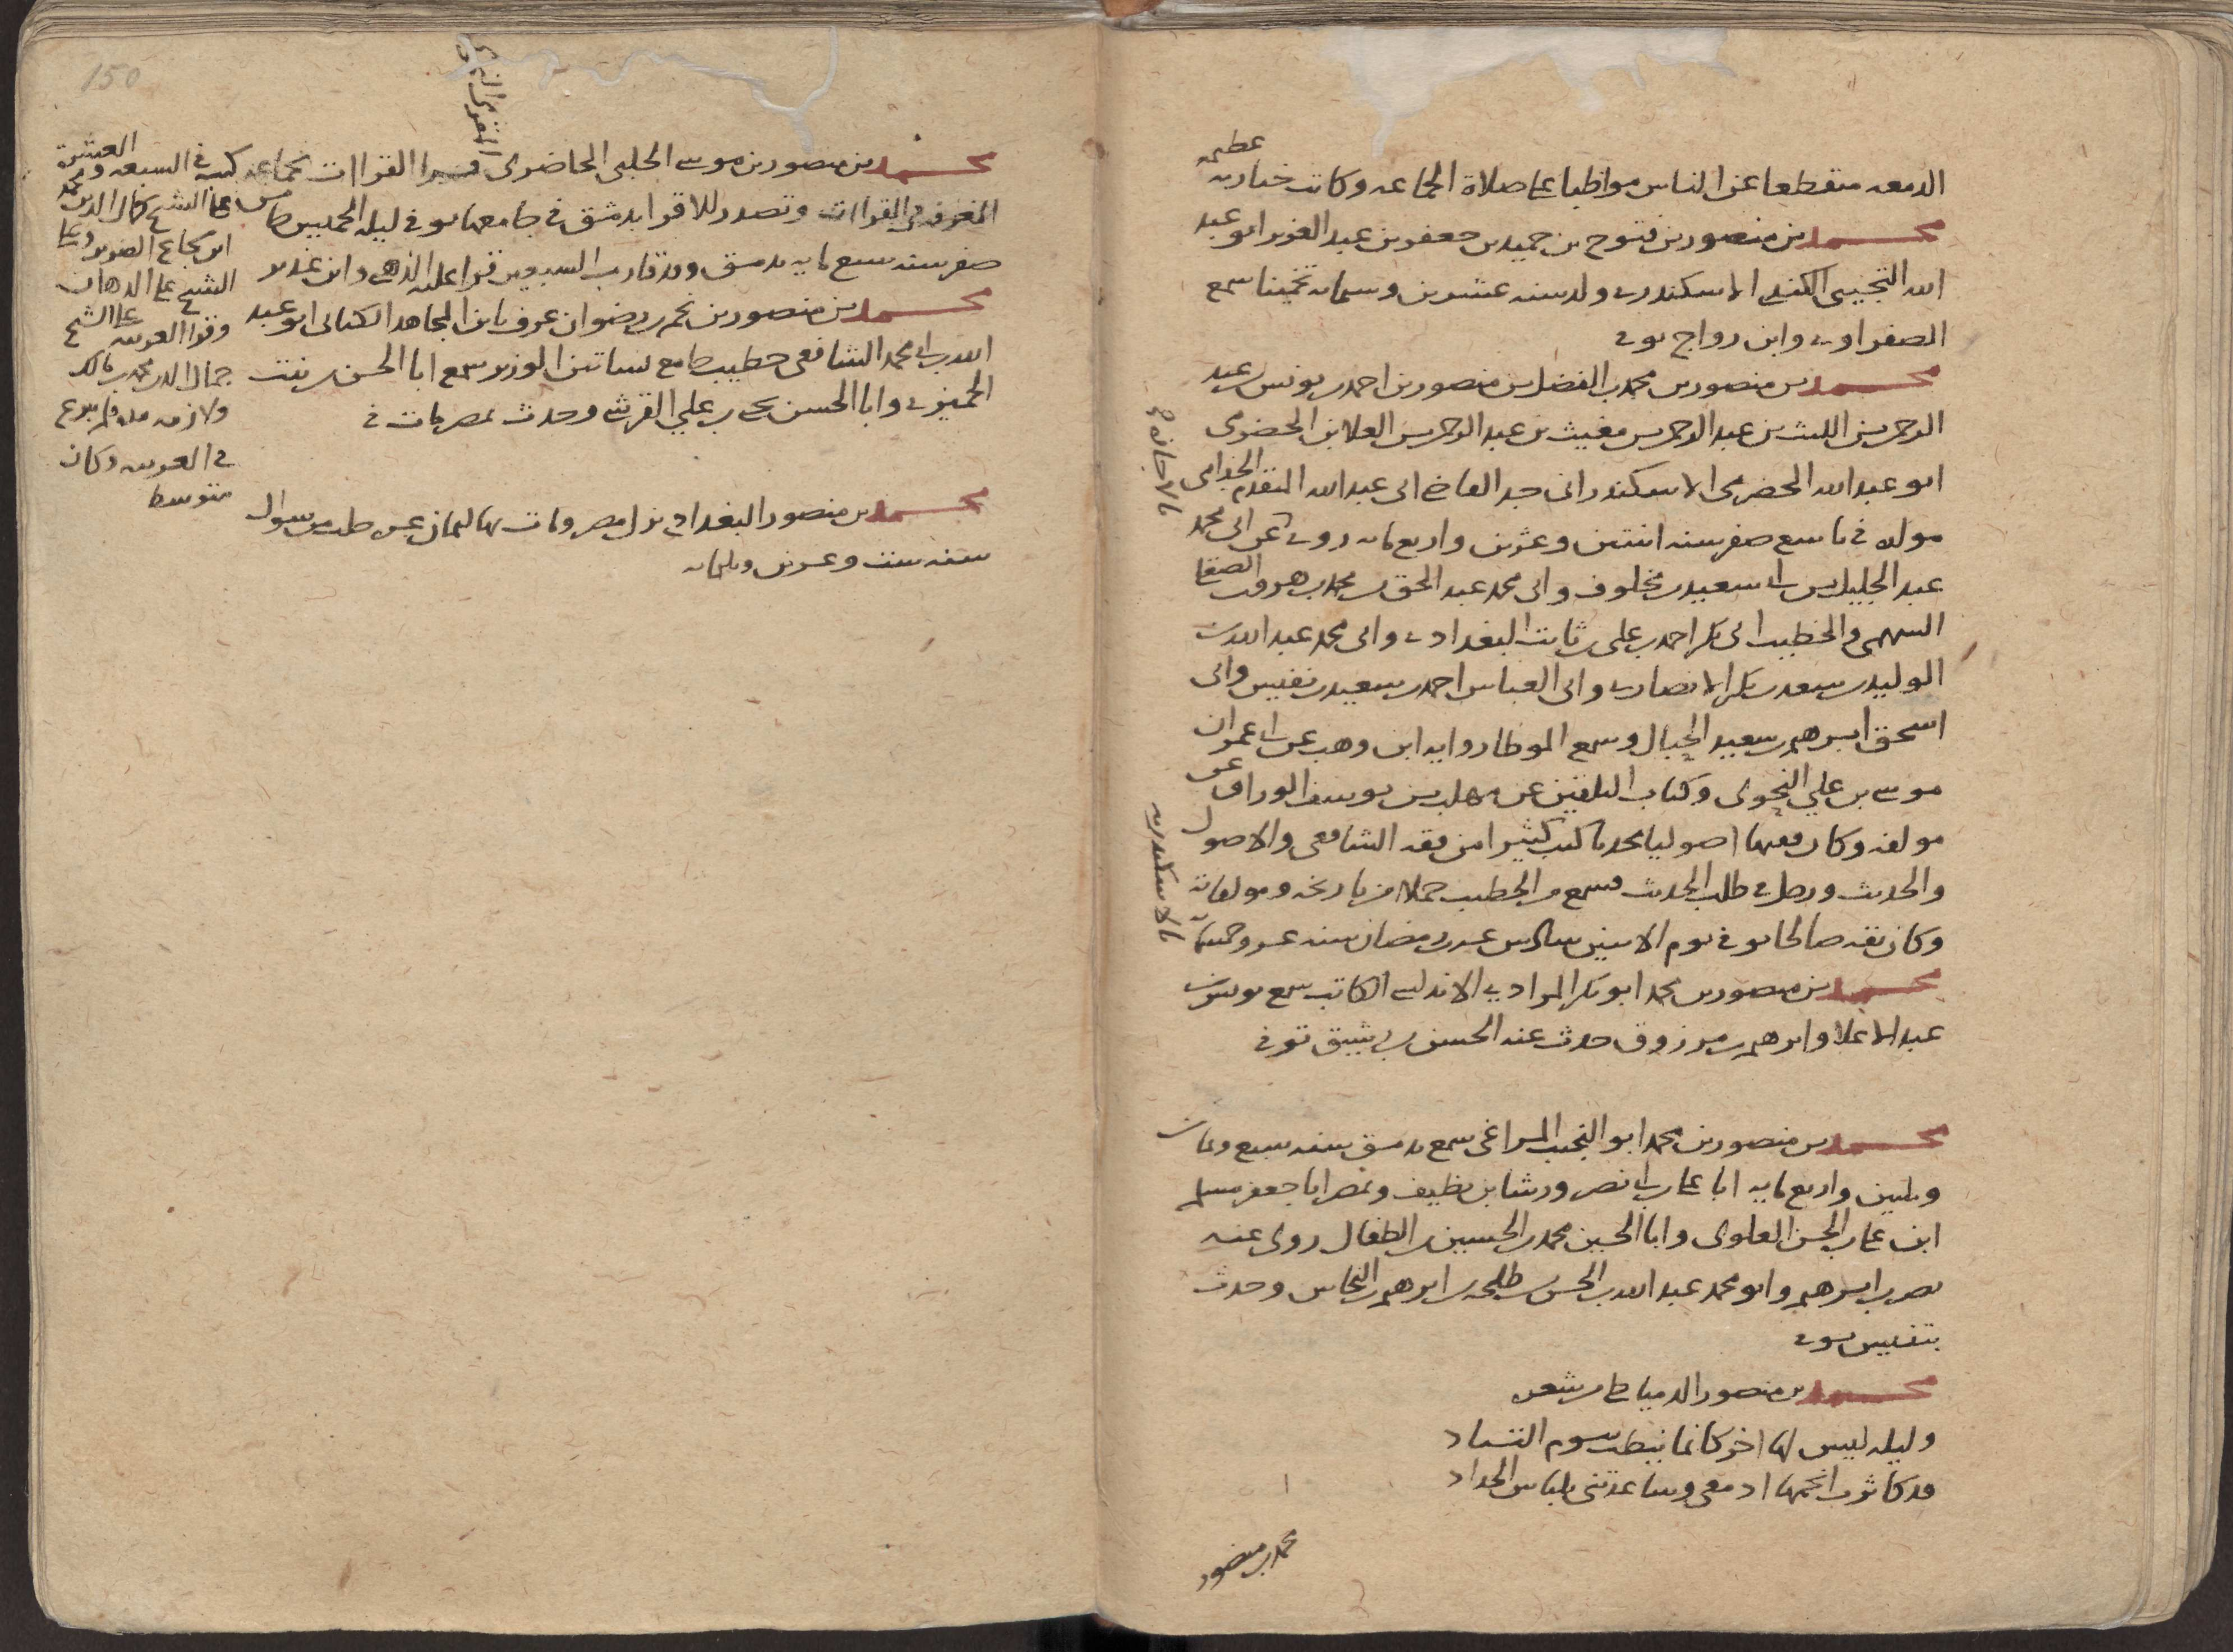 الدمعه منقطعا عن الناس مواظبا على صلاة الجماعه وكانت جنازته
عظيمه
محمد بن منصور بن فتوح بن حميد بن جعفر بن عبد العزيز ابو عبد
الله التجيبي الكندي الاسكندري ولد سنه عشرين وستمايه تخمينا سمع
الصفراوي وابن رواج توفي
محمد بن منصور بن محمد بن الفضل بن منصور بن احمد بن يونس بن عبد
الرحمن بن الليث بن عبد الرحمن بن مغيث بن عبد الرحمن بن العلا بن الحضرمى
ابو عبدالله الحضرمى الاسكندرانى جد القاضي ابى عبدالله المتقدم
مولده في تاسع صفر سنه اثنتين وعشرين واربع مايه روى عن ابى محمد
عبد الجليل بن ابي سعيد بن مخلوف وابى محمد عبد الحق بن محمد بن هرون
السهمى والخطيب ابى بكر احمد بن على بن ثابت البغدادي وابى محمد عبدالله بن
الوليد بن سعد بن بكر الانصاري وابى العباس احمد بن سعيد بن نفيس وابى
اسحق ابرهيم بن سعيد الحبال وسمع الموطا روايه ابن وهب عن ابي عمران
موسى بن علي النحوى وكتاب التلقين عن مهلب بن يوسف الوراق عن
مولفه وكان فقيها اصوليا محدثا كتب كثيرا من فقه الشافعى والاصول
والحديث ورحل في طلب الحديث فسمع من الخطيب جملا من تاريخه ومولفاته
وكان ثقه صالحا توفي يوم الاثنين سادس عشر رمضان سنه عشر وخمسمايه
بالاسكندريه
محمد بن منصور بن محمد ابو بكر المرادي الاندلسي الكاتب سمع يونس بن
عبد الاعلا وابرهيم بن مرزوق حدث عنه الحسن بن رشيق توفي
محمد بن منصور بن محمد ابو النجيب المراغى سمع بدمشق سنه سبع وثمان
وثلثين واربع مايه ابا علي بن ابي نصر ورشا بن نظيف وبمصر ابا جعفر مسلم
ابن علي بن الحسن العلوى وابا الحسين محمد بن الحسين بن الطفال روى عنه
نصر بن ابرهيم وابو محمد عبد الله بن الحسن بن طلحه بن ابرهيم بن النحاس وحدث
بتنيس توفي
محمد بن منصور الدمياطى من شعره
وليله ليس لها اخر كانما نيطت بيوم التناد
قد كاثرت انجمها ادمعى وساعدتنى بلباس الحداد
محمد بن منصور
150
محمد بن منصور بن موسى الحلبى الحاضرى قرا القراات بجماعه كتب في السبعه والعشرة
وتصدر للاقرا بدمشق في جامعها توفي ليله الخميس
صفر سنه سبع مايه بدمشق وقد قارب السبعين قرا عليه الذهبى وابن غدير
على الشيخ كمال الدين
ابن شجاع الضرير وعلى
الشيخ على الدهان
وقرا العربيه على الشيخ
جمال الدين محمد بن مالك
ولازمه مده فلم يبرع
في العربيه وكان
متوسطا
محمد بن منصور بن نجم بن رضوان عرف بابن المجاهد الكنانى ابو عبد
الله بن ابي محمد الشافعى خطيب جامع بساتين الوزير سمع ابا الحسن بن بنت
الجميزي وابا الحسن يحيى بن علي القرشي وحدث بمصر مات في
محمد بن منصور البغدادى نزل مصر ومات بها لثمان عشر خلت من شوال
سنه ست وعشرين وثلثمايه